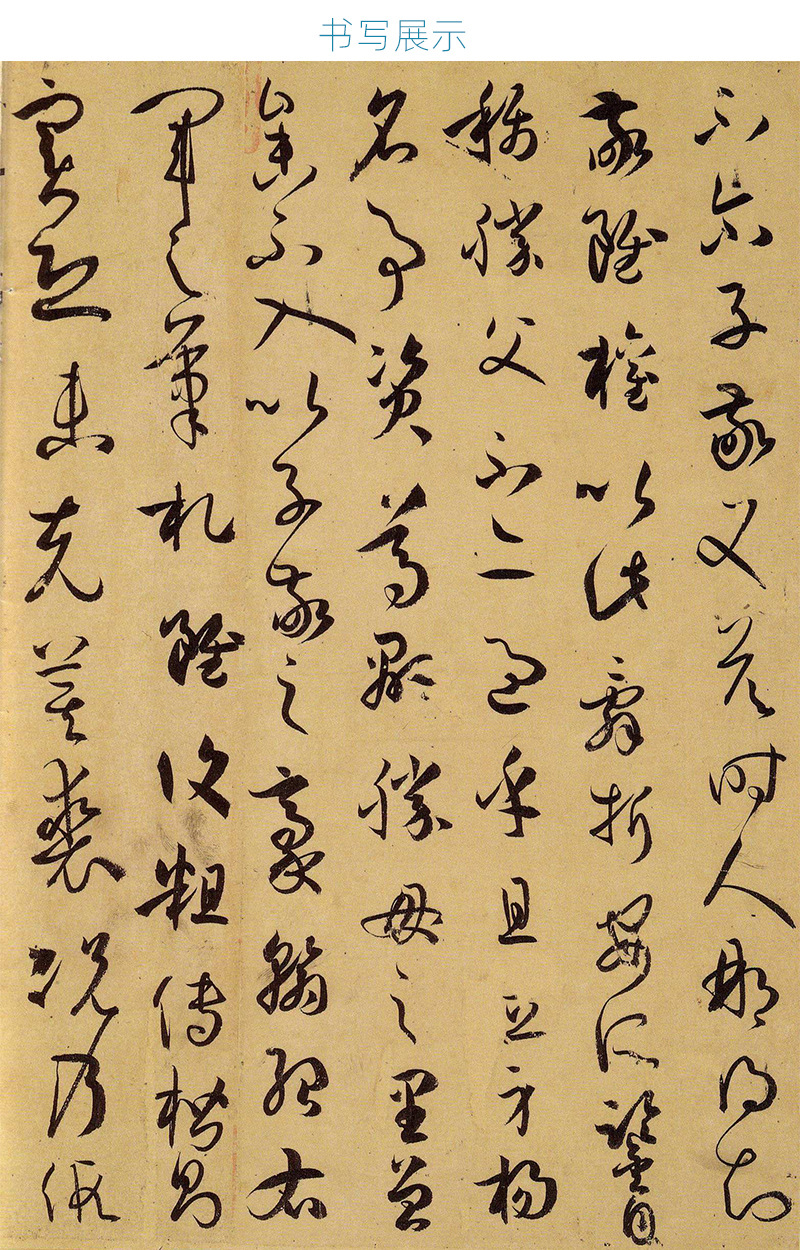 书写展示
不尔子敬又答時人那得知
敬雖權以此辭折安所鑒自
稱勝父不亦過乎且立身揚
名事資尊顯勝母之里曾
參不入以子敬之豪翰紹右
軍之筆札雖復粗傳楷則
實恐未克箕裘況乃假